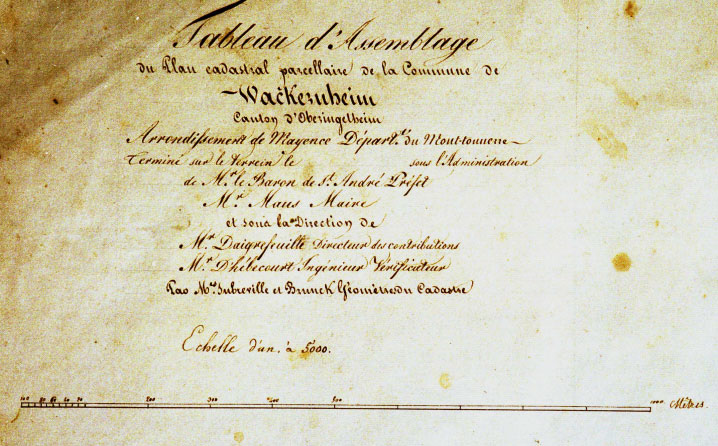 Tableau d'Assemblage
du Plan cadastral parcellaire de la Commune de
Wackernheim
Canton d'Oberingelheim
Arrondissement de Mayence Départ.t du Mont-tonnerre
Terminé sur le terrein le sous l'Administration
de M.r le Baron de S.t André Préfet
M.r Maus Maire
et sous la Direction de
M.r Daigrefeuille Directeur des contributions
M.r D'hélécourt Ingénieur Vérificateur
Par M.rs Subreville et Brunck Géomètres du Cadastre
Echelle d'un. à 5000.
100 80 60 40 20 200 300 400 500 1000 Mètres.